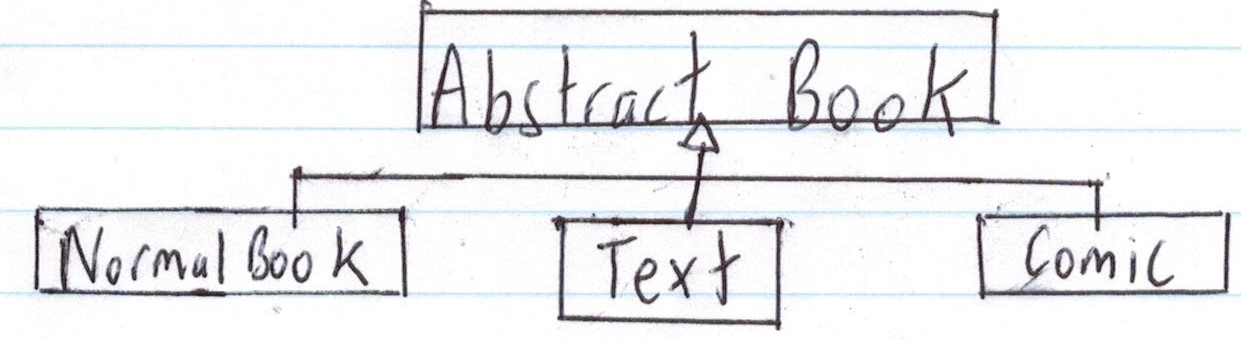 Abstract Book
Normal Book
Text
Comic